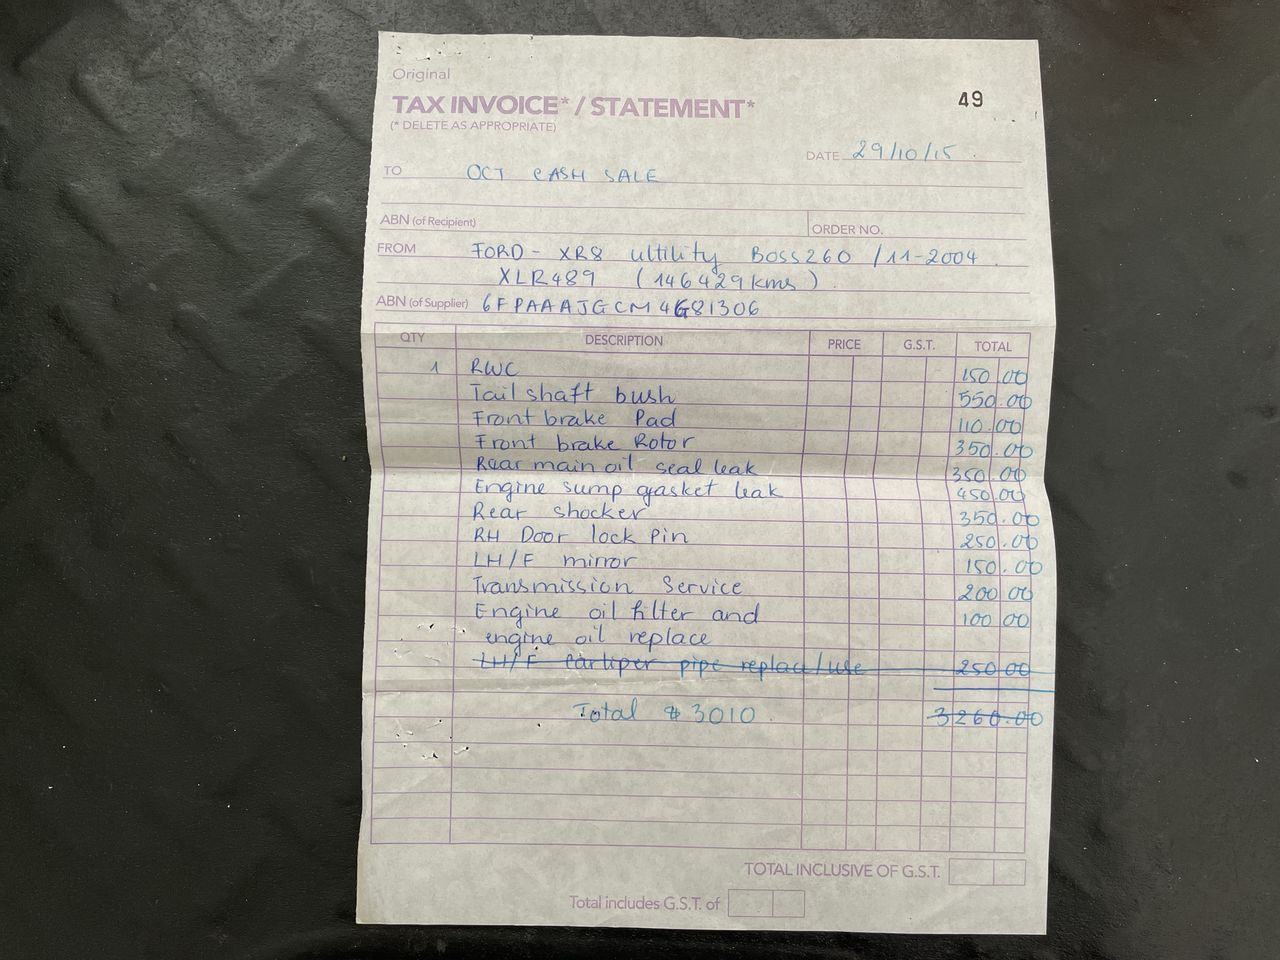 Original
TAX INVOICE* / STATEMENT*
49
(* DELETE AS APPROPRIATE)
DATE 29/10/15
TO OCT CASH SALE
ABN (of Recipient) ORDER NO.
FROM FORD - XR8 ultility BOSS260 /11-2004
XLR489 (146429kms)
ABN (of Supplier) 6FPAAAJGCM4G81306
QTY DESCRIPTION PRICE G.S.T. TOTAL
1 RWC 150.00
Tail shaft bush 550.00
Front brake Pad 110.00
Front brake Rotor 350.00
Rear main oil seal leak 350.00
Engine sump gasket leak 450.00
Rear shocker 350.00
RH Door lock Pin 250.00
LH/F mirror 150.00
Transmission Service 200.00
Engine oil filter and 100.00
engine oil replace
LH/F pipe replace 250.00
Total $3010 3260.00
TOTAL INCLUSIVE OF G.S.T.
Total includes G.S.T. of